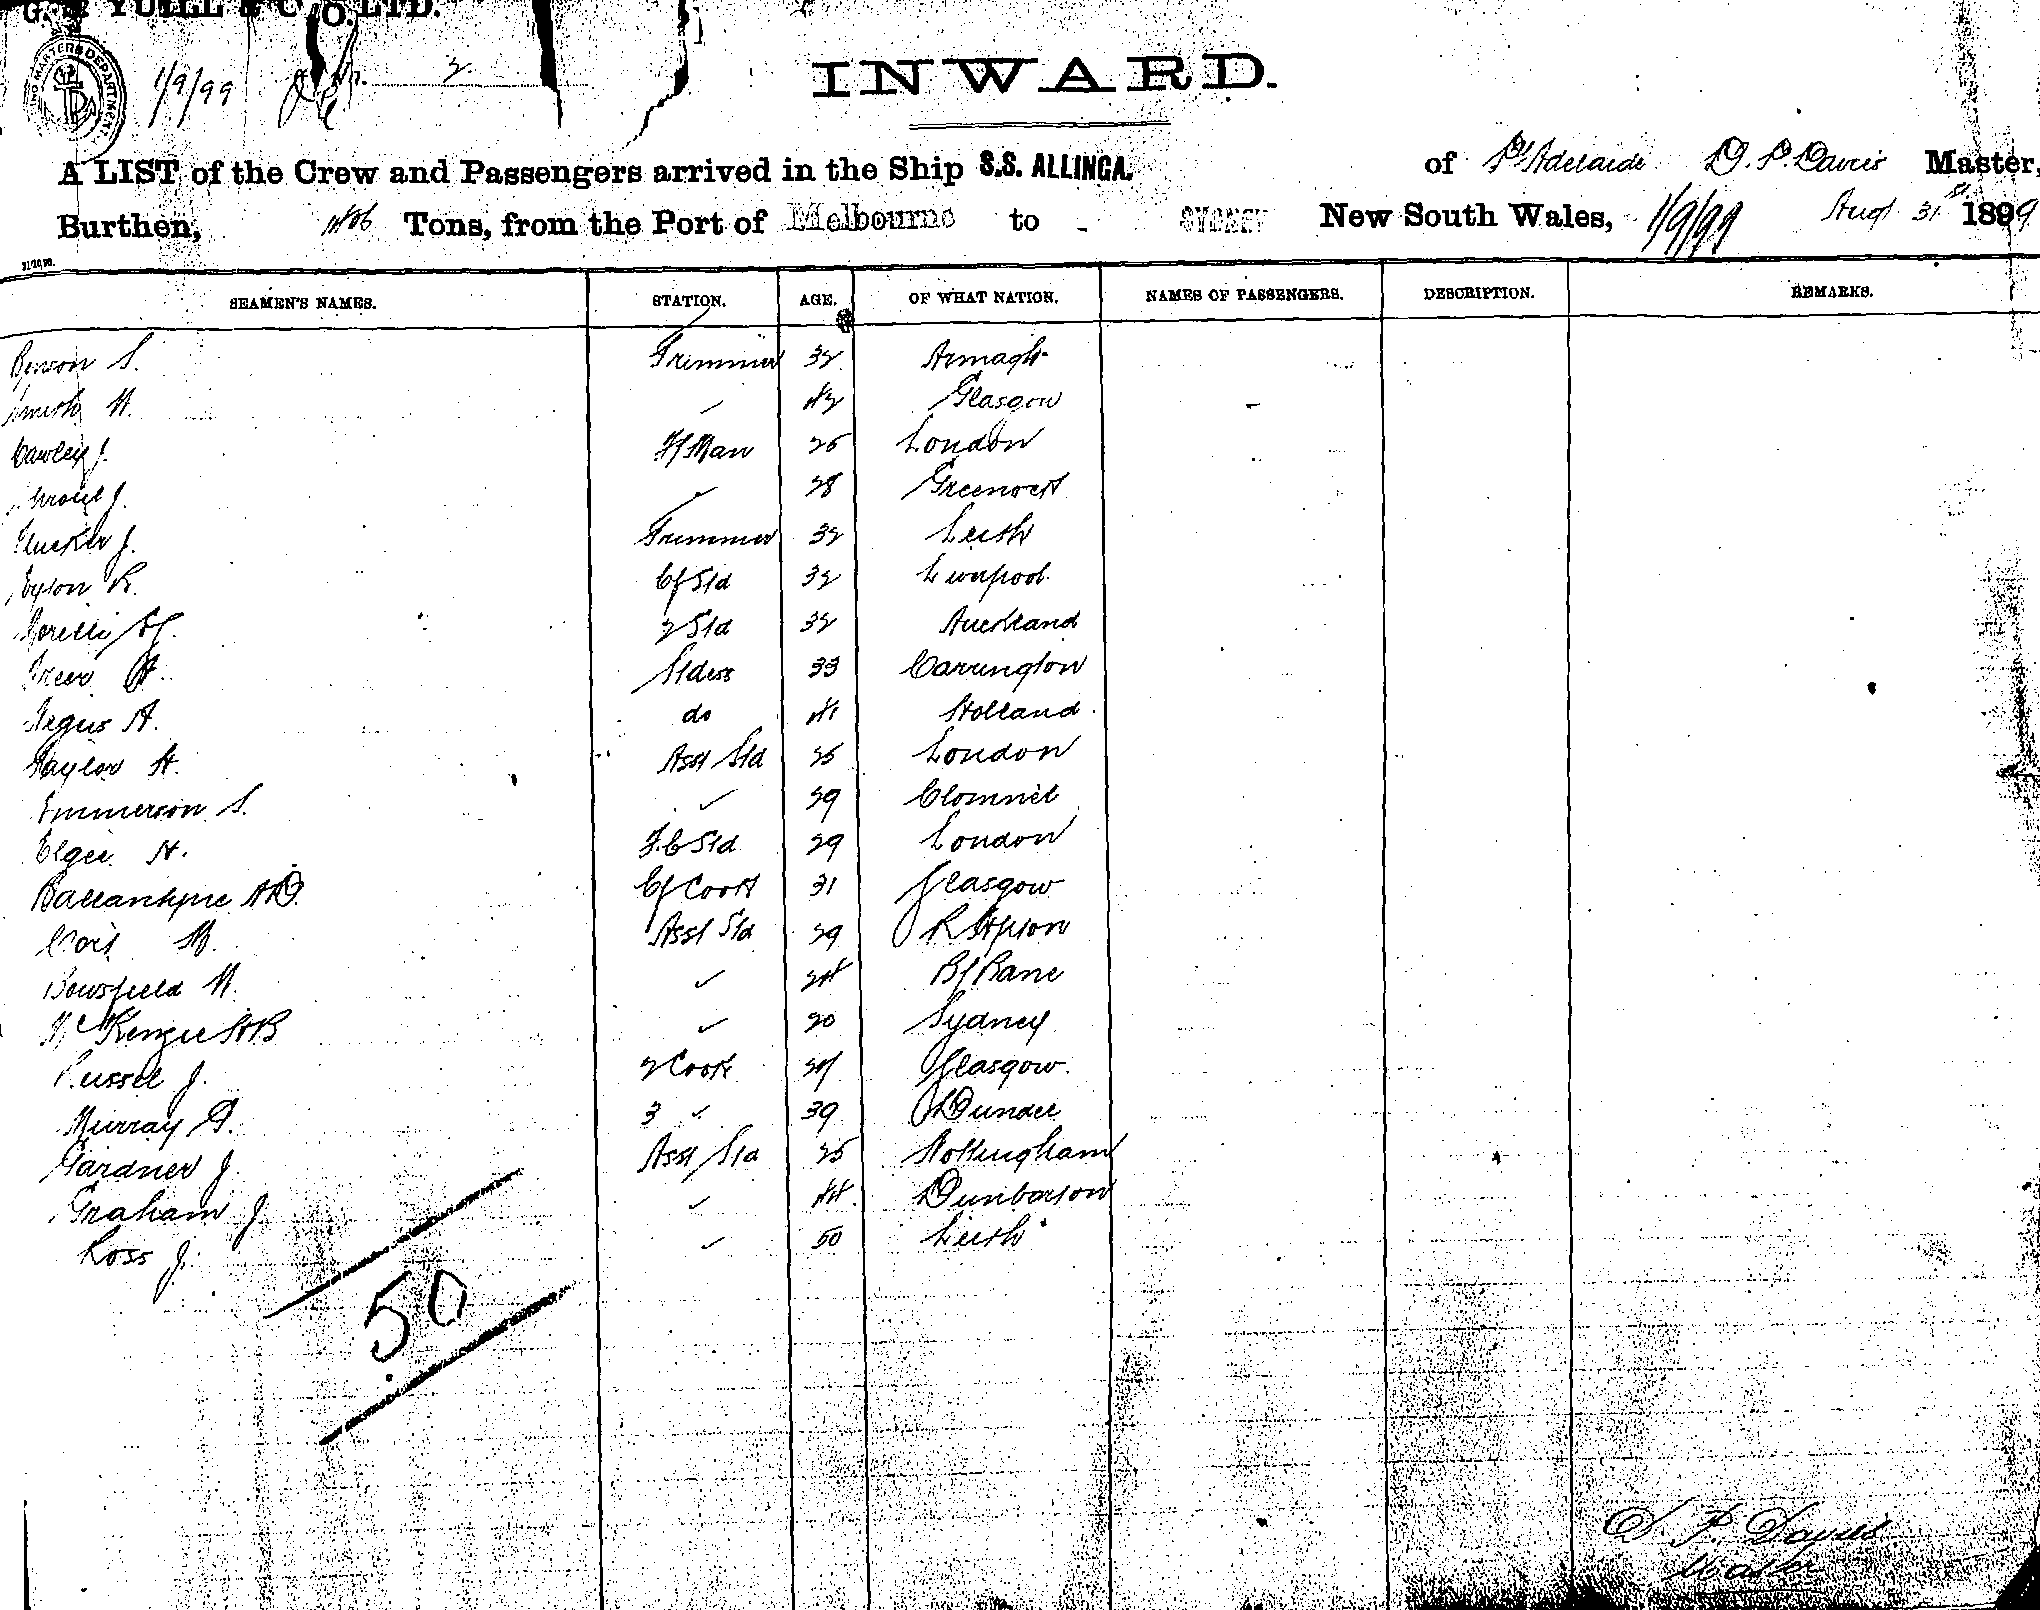 G. S. YUILL & CO. LTD.
1/9/99 2.
INWARD.
A LIST of the Crew and Passengers arrived in the Ship S.S. ALLINGA. of Pt Adelaide D. P. Davies Master,
Burthen, Tons, from the Port of Melbourne to SYDNEY New South Wales, 1/9/99 Augt 31st 1899
SEAMEN'S NAMES. STATION. AGE. OF WHAT NATION. NAMES OF PASSENGERS. DESCRIPTION. REMARKS.
Benson S. Trimmer 32 Armagh
Smith W. " 42 Glasgow
Cawley J. F/Man London
J. " 28 Greenock
Flucker J. Trimmer 32 Leith
R. Cf Std 32 Liverpool
2 Std 32 Auckland
Stdess 33 Carrington
Negus A. do 41 Holland
Taylor H. Asst Std London
Emmerson S. " 29 Clonmel
Elger H. F.C Std 29 London
Ballantyne A D. Cf Cook 31 Glasgow
Asst Std 29
Bowsfield W. " 24 B/Bane
McKenzie H B " 20 Sydney
Russel J. 2 Cook Glasgow
Murray D. 3 " 39 Dundee
Gardner J. Asst Std 25 Nottingham
Graham J. " 44 Dunbarton
Ross J. " 50 Leith
50
D. P. Davies
Master